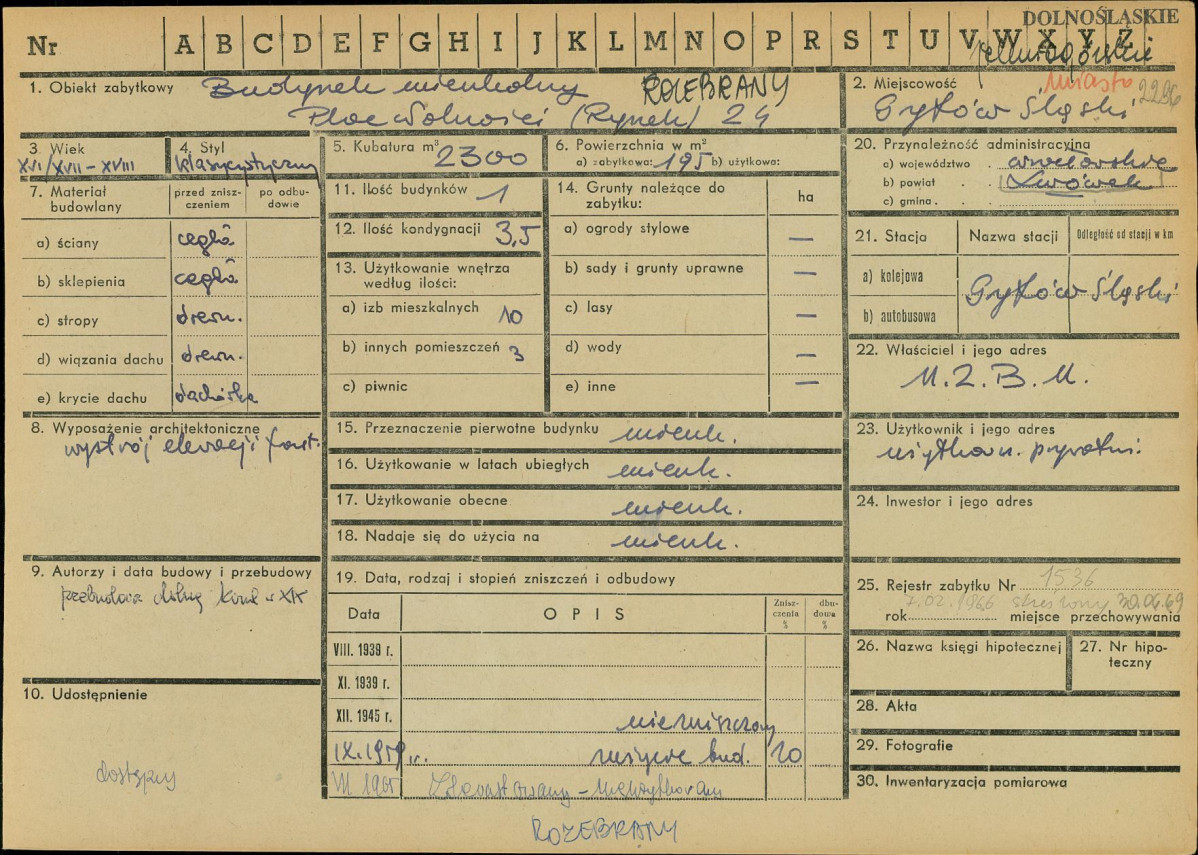 DOLNOŚLĄSKIE
Nr A B C D E F G H I J K L M N O P R S T U V W X Y Z
miasto 2296
1. Obiekt zabytkowy Budynek mieszkalny ROZEBRANY
Plac Wolności (Rynek) 24
2. Miejscowość
Gryfów Śląski
3. Wiek
XVI/XVII-XVIII
4. Styl
klasycystyczny
5. Kubatura m³ 2300
6. Powierzchnia w m²
a) zabytkowa: 195 b) użytkowa:
7. Materiał budowlany
przed zniszczeniem
po odbudowie
a) ściany cegła
b) sklepienia cegła
c) stropy drewn.
d) wiązania dachu drewn.
e) krycie dachu dachówka
8. Wyposażenie architektoniczne
wystrój elewacji front.
9. Autorzy i data budowy i przebudowy
10. Udostępnienie
dostępny
11. Ilość budynków 1
12. Ilość kondygnacji 3,5
13. Użytkowanie wnętrza
według ilości:
a) izb mieszkalnych 10
b) innych pomieszczeń 3
c) piwnic
14. Grunty należące do
zabytku:
ha
a) ogrody stylowe —
b) sady i grunty uprawne —
c) lasy —
d) wody —
e) inne —
15. Przeznaczenie pierwotne budynku mieszk.
16. Użytkowanie w latach ubiegłych mieszk.
17. Użytkowanie obecne mieszk.
18. Nadaje się do użycia na mieszk.
19. Data, rodzaj i stopień zniszczeń i odbudowy
Data OPIS Zniszczenia % dbudowa %
VIII. 1939 r.
XI. 1939 r.
XII. 1945 r. niezniszczony
IX. 1959 r. zużycie bud. 20
ROZEBRANY
20. Przynależność administracyjna
a) województwo . wrocławskie
b) powiat . . Lwówek
c) gmina . .
21. Stacja Nazwa stacji Odległość od stacji w km
a) kolejowa
b) autobusowa
Gryfów Śląski
22. Właściciel i jego adres
M.Z.B.M.
23. Użytkownik i jego adres
użytkown. prywatni
24. Inwestor i jego adres
25. Rejestr zabytku Nr 1536
7.02.1966 skreślony 30.04.69
rok miejsce przechowywania
26. Nazwa księgi hipotecznej
27. Nr hipoteczny
28. Akta
29. Fotografie
30. Inwentaryzacja pomiarowa